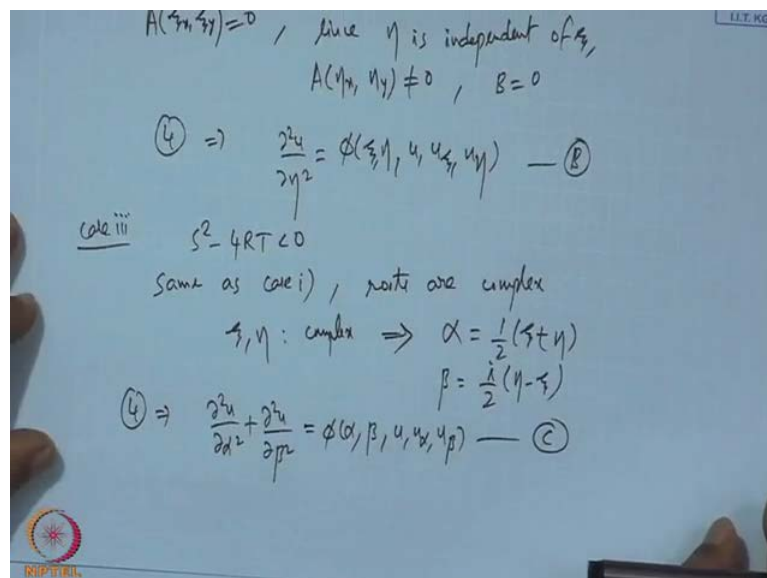 A(ξx, ξy)=0 , since η is independent of ξ,
A(ηx, ηy) ≠ 0 , B=0
④ ⇒ ∂²u/∂η² = φ(ξ, η, u, uξ, uη) — Ⓑ
case iii S² - 4RT < 0
same as case i), roots are complex
ξ, η : complex ⇒ α = 1/2 (ξ+η)
β = i/2 (η-ξ)
④ ⇒ ∂²u/∂α² + ∂²u/∂β² = φ(α, β, u, uα, uβ) — Ⓒ
I.I.T. KG
NPTEL